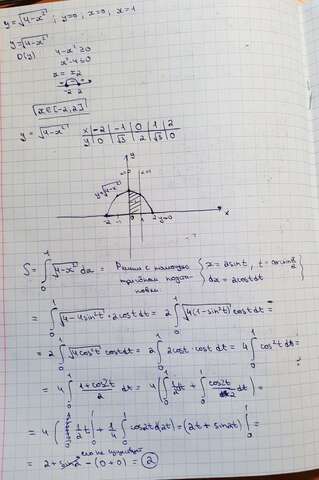 y=√4-x² ; y=0, x=0, x=1
y=√4-x²
D(y) 4-x²≥0
x²-4≤0
x=±2
-2 2
x∈[-2,2]
y=√4-x² x -2 -1 0 1 2
y 0 √3 2 √3 0
y
y=√4-x²
-2 -1 0 1 2 y=0 x
S= ∫₀¹ √4-x² dx = Решим с помощью тригоном подстановки { x=2sint, t=arcsin x/2
dx=2costdt
= ∫₀¹ √4-4sin²t · 2costdt = 2∫₀¹ √4(1-sin²t) costdt =
= 2∫₀¹ √4cos²t costdt = 2∫₀¹ 2cost cost dt = 4∫₀¹ cos²t dt =
= 4∫₀¹ 1+cos2t/2 dt = 4(∫₀¹ 1/2 dt + ∫₀¹ cos2t/2 dt) =
= 4(1/2 t|₀¹ + 1/4 ∫₀¹ cos2td2t) = (2t+sin2t)|₀¹ =
= 2+sin2 - (0+0) = 2